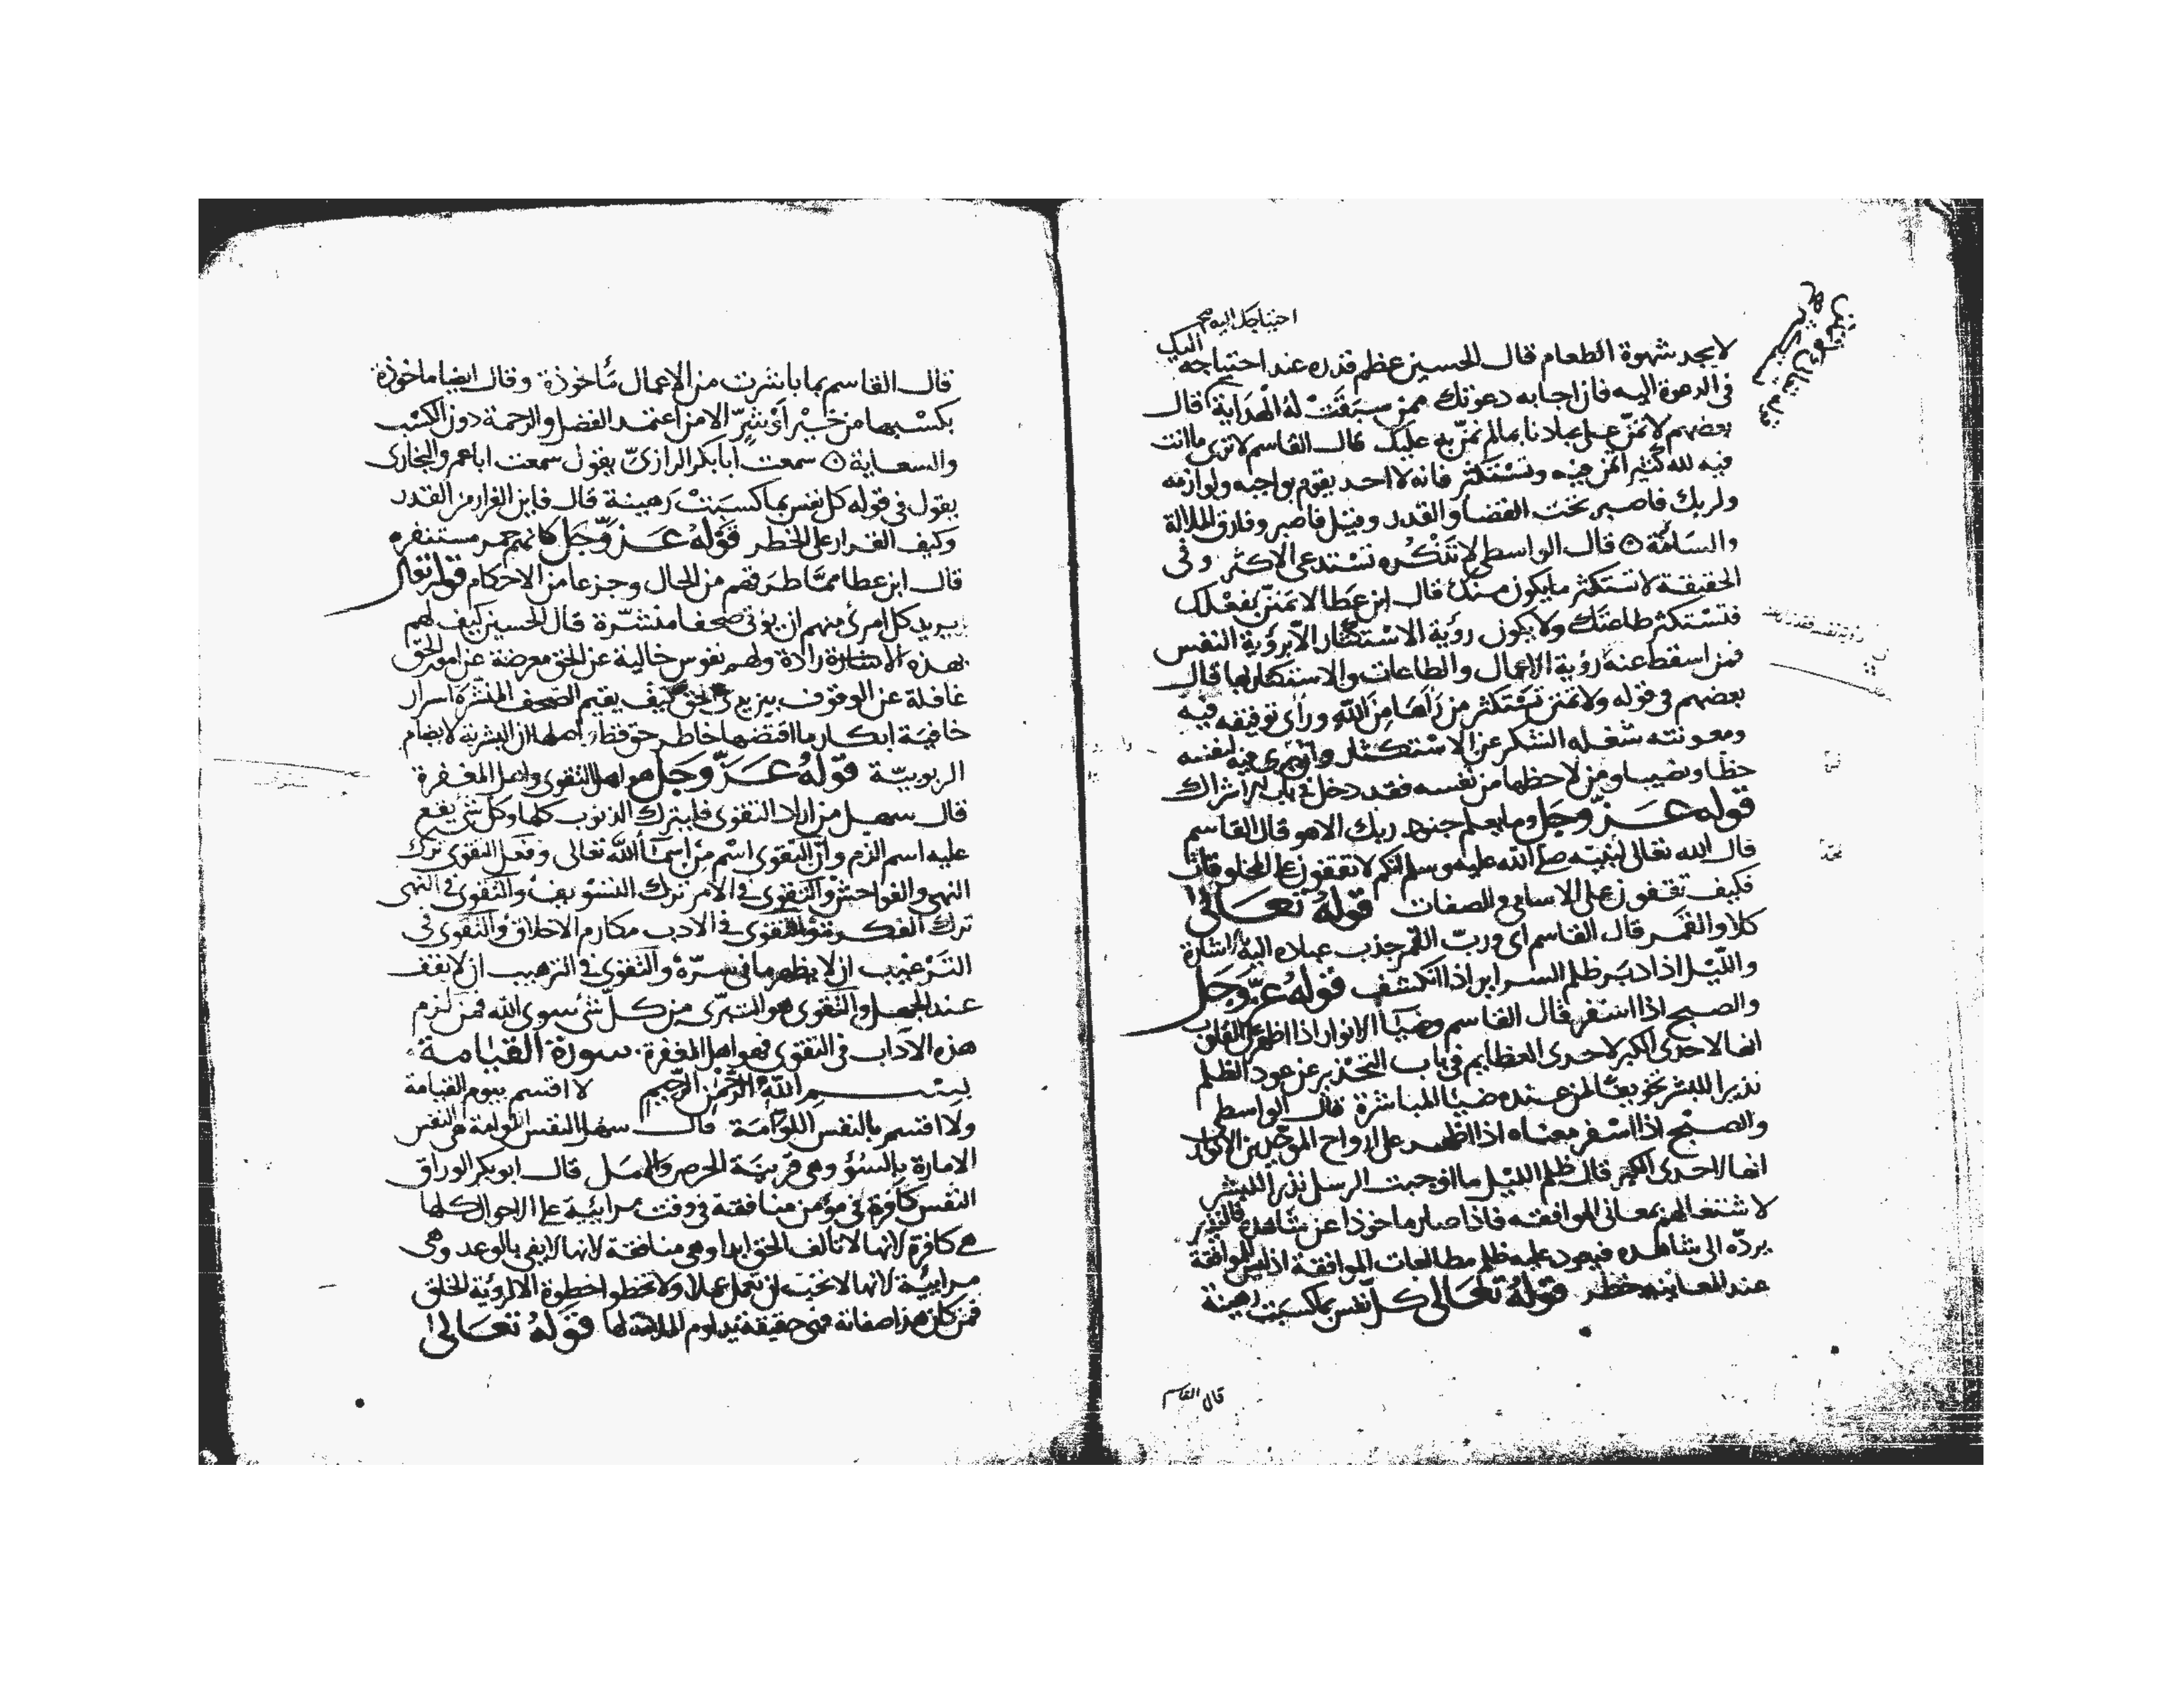 احتياجك اليه صح
لا يجد شهوة الطعام قال الحسين عظم قدره عند احتياجه اليك
في الدعوة اليه فان اجابه دعوتك ممن سبقت له الهداية قال
بعضهم لا تمنن على عبادنا بما لم نمنّ به عليك قال القاسم لا ترى ما انت
فيه لله كثيرا تمن فيه وتستكثر فانه لا احد يقوم بواجبه ولوازمه
ولربك فاصبر تحت القضا والقدر وقيل فاصبر وفارق الملالة
والسآمة ه قال الواسطي لا تذكره تستدعى الاكثر وفى
الحقيقة لا تستكثر ما يكون منك قال ابن عطا لا تمنن بفعلك
فتستكثر طاعتك ولا يكون رؤية الاستكثار الا برؤية النفس
فمن اسقط عنه رؤية الاعمال والطاعات والاستكثار بها قال
بعضهم في قوله ولا تمنن تستكثر من رآها من الله ورأى توفيقه فيه
ومعونته شغله الشكر عن الاستكثار فيه لنفسه
حظا ونصيبا ومن لاحظها من نفسه فقد دخل في باب الاشراك
قوله عز وجل وما يعلم جنود ربك الا هو قال القاسم
قال الله تعالى لنبيه صلى الله عليه وسلم انكم لا تقفون على المخلوقات
فكيف تقفون على الاسامى والصفات قوله تعالى
كلا والقمر قال القاسم اى ورب القمر جذب عباده اليه اشارة
والليل اذا دبر ظلم السراير اذا انكشف قوله عز وجل
والصبح اذا اسفر قال القاسم وضيا الانوار اذا اظهر على القلوب
انها لاحدى الكبر لاحدى العظايم في باب التحذير عن عود الظلم
نذيرا للبشر تخويفا لمن عنده ضيا المباشرة قال الواسطي
والصبح اذا اسفر معناه اذا اظهر على ارواح الموحدين الانوار
انها لاحدى الكبر قال ظلم الليل ما اوجبت الرسل نذيرا للبشر
لاشتغالهم بمعانى الموافقه فاذا صار ماخوذا عن شاهده فالنذير
يرده الى شاهده فيعود عليه ظلم مطالعات الموافقة اذ ليس للموافقة
عند المعاينه خطر قوله تعالى كل نفس بما كسبت رهينة
قال القاسم
قال القاسم بما باشرت من الاعمال مأخوذة وقال ايضا ماخوذة
بكسبها من خير أو شر الا من اعتمد الفضل والرحمة دون الكسب
والسعاية ه سمعت ابا بكر الرازي يقول سمعت ابا عمرو البخارى
يقول في قوله كل نفس بما كسبت رهينة قال فاين الفرار من القدر
وكيف القرار على الخطر قوله عز وجل كانهم حمر مستنفره
قال ابن عطا مما طرقهم من الحال وجزعا من الاحكام قوله تعالى
يريد كل امرئ منهم ان يؤتى صحفا منشرة قال الحسين كيف لهم
بهذه ولهم نفوس خالية عن الحق معرضة عن امور الحق
غافلة عن الوقوف بين يدى الحق كيف يقيم الصحف المنشرة اسرار
خافية ابكار ما اقتضها خاطر حق قط ان البشرية لا يضام
الربوبية قوله عز وجل هو اهل التقوى واهل المغفرة
قال سهل من اراد التقوى فليترك الذنوب كلها وكل شئ يقع
عليه اسم الذم وان التقوى اسم من اسما الله تعالى وفعل التقوى ترك
النهى والفواحش والتقوى في الامر ترك التسويف والتقوى في النهى
ترك الفكرة والتقوى في الادب مكارم الاخلاق والتقوى في
الترغيب ان لا يظهر ما في سره والتقوى في الترهيب ان لا يقف
عند الجهل والتقوى هو التبرى من كل شئ سوى الله فمن لزم
هذه الاداب في التقوى فهو اهل المغفرة . سورة القيامة
بسم الله الرحمن الرحيم لا اقسم بيوم القيامة
ولا اقسم بالنفس اللوامة قال سهل النفس اللوامة هى النفس
الامارة بالسوء وهى قرينة الحرص والامل قال ابو بكر الوراق
النفس كافرة في مؤمن منافقة في وقت مرايية على الاحوال كلها
هى كافرة لانها لا تالف الحق ابدا وهى منافقة لانها لا يفى بالوعد وهى
مرايية لانها لا تحب ان تعمل عملا ولا تخطوا خطوة الا لرؤية الخلق
فمن كان هذا صفاته فهى حقيقة بدوام الملامة لها قوله تعالى